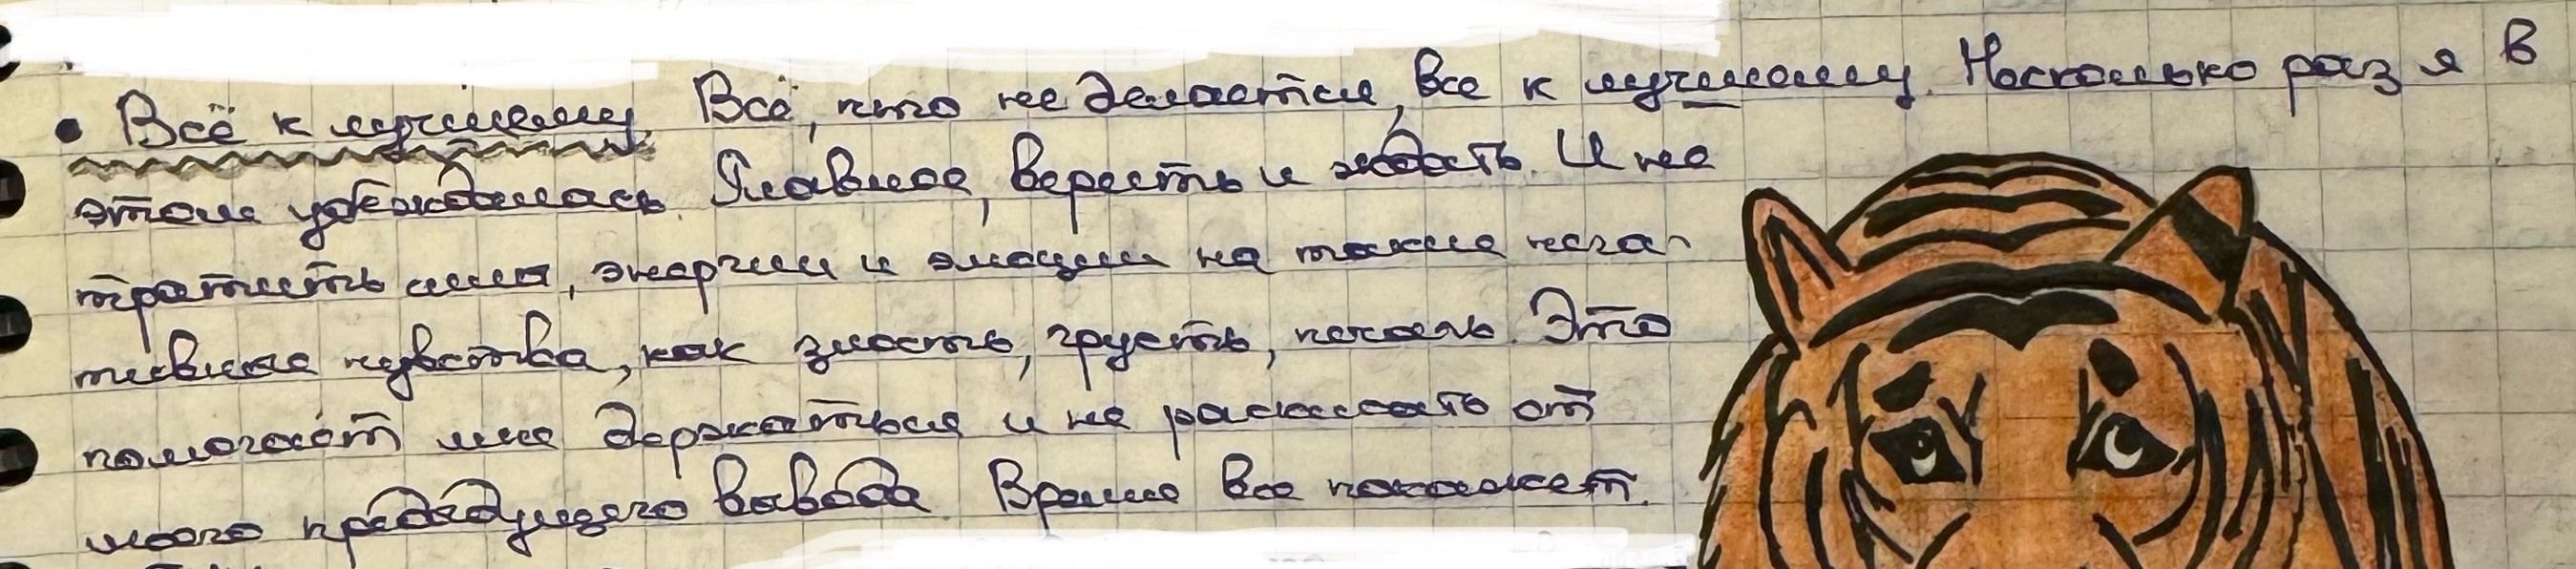 • Всё к лучшему. Всё, что не делается, все к лучшему. Несколько раз я в
этом убеждалась. Главное, верить и ждать. И не
тратить силы, энергии и эмоции на такие нега-
тивные чувства, как злость, грусть, печаль. Это
помогает мне держаться и не раскисать от
моего предыдущего вывода. Время все покажет.